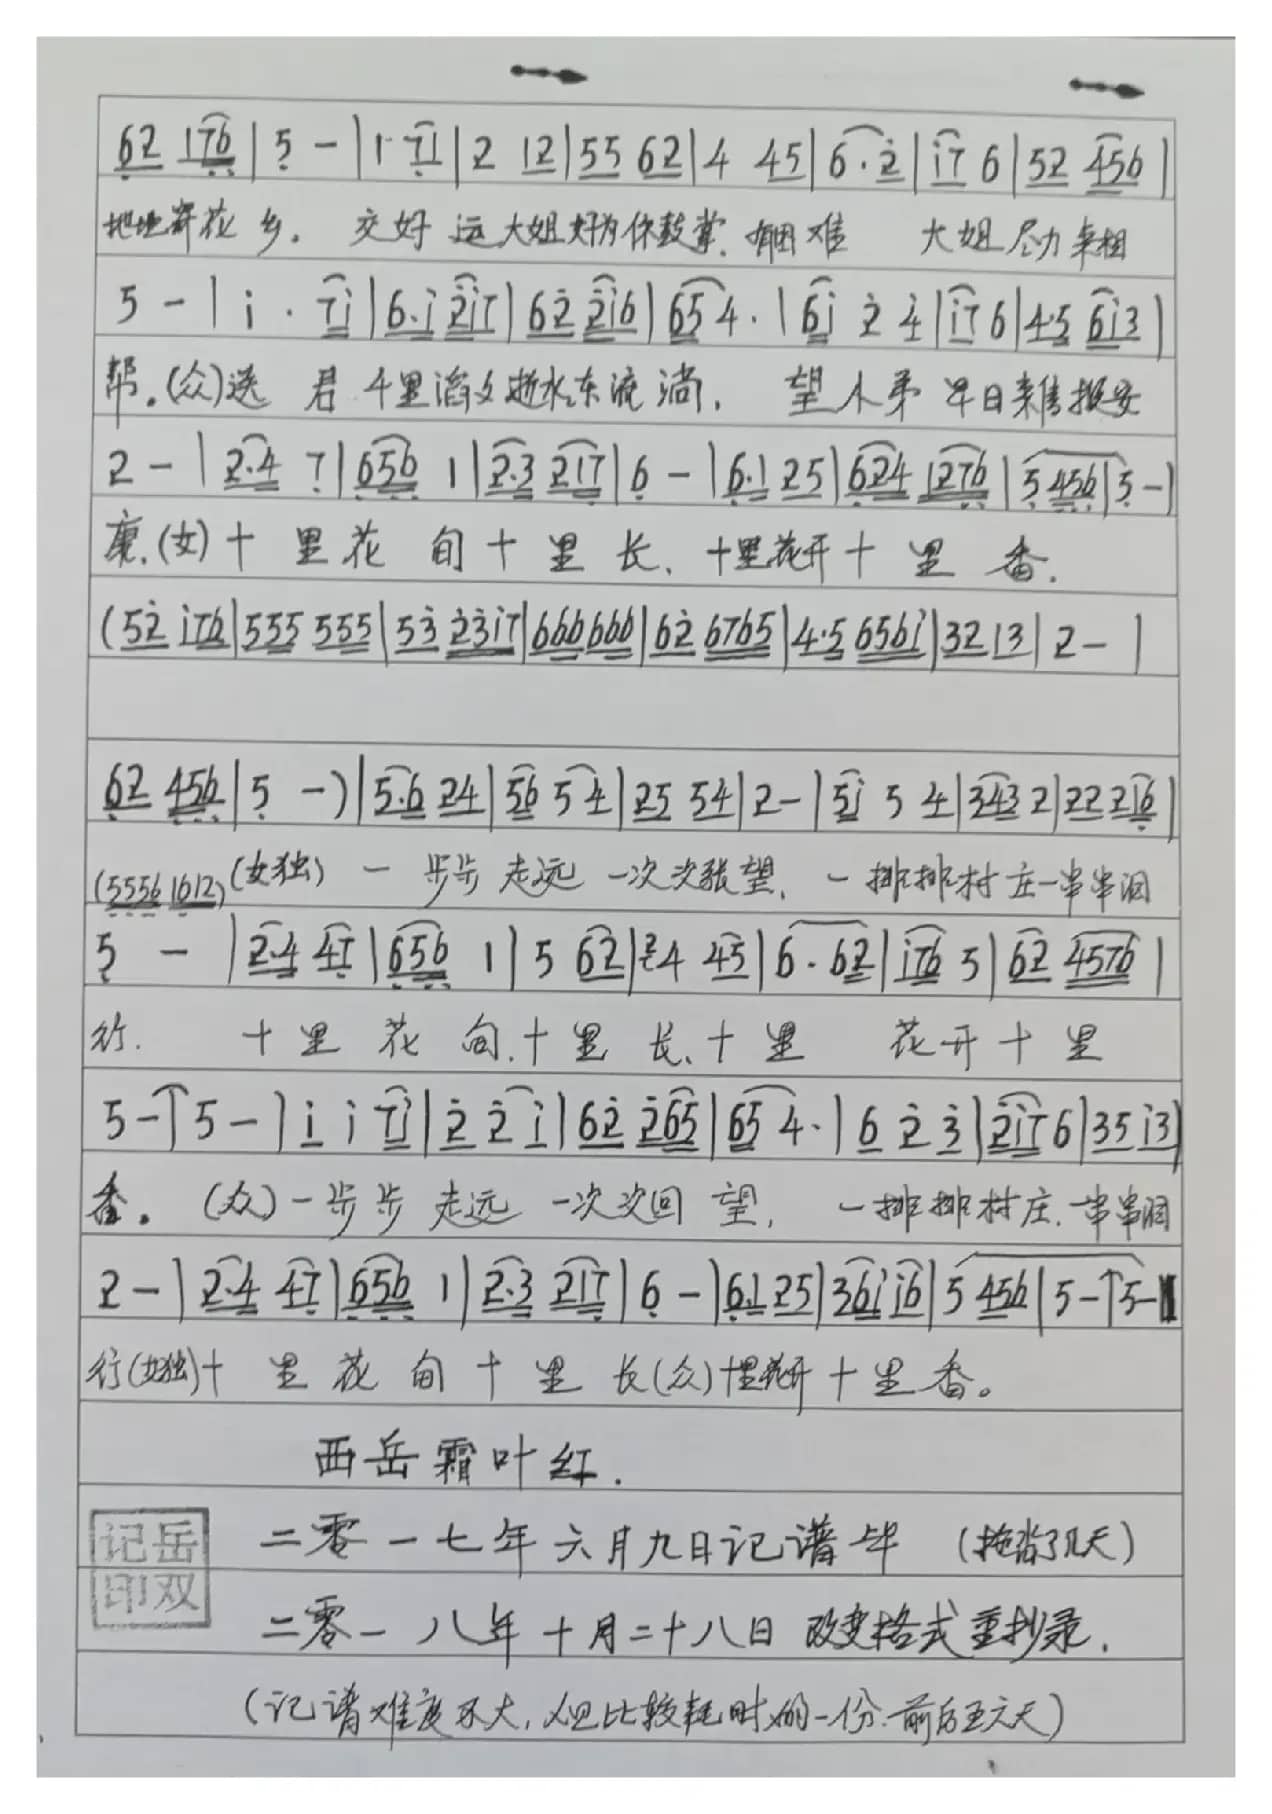 62 176 | 5 - | 1· 71 | 2 12 | 55 62 | 4 45 | 6·2 | i7 6 | 52 456 |
花乡。交好运大姐好为你鼓掌,有困难 大姐尽力来相
5 - | i · 7i | 6·i 2i7 | 62 2i6 | 65 4· | 6i 2 4 | i7 6 | 4·5 6i3 |
帮。(众)送君千里滔滔逝水东流淌, 望小弟早日来信报安
2 - | 2·4 7 | 656 1 | 2·3 217 | 6 - | 6·1 25 | 624 1276 | 5 456 | 5 - |
康.(女)十里花甸十里长、十里花开十里香.
(52 i76 | 555 555 | 53 23i7 | 666 666 | 62 6765 | 4·5 656i | 32 13 | 2 - |
62 456 | 5 -) | 5·6 24 | 56 5 4 | 25 54 | 2 - | 5i 5 4 | 343 2 | 22 216 |
(5556 1612)(女独) 一步步走远一次次张望, 一排排村庄一串串泪
5 - | 2·4 47 | 656 1 | 5 62 | 2 4 45 | 6·62 | i76 5 | 62 4576 |
行. 十里花甸,十里长、十里 花开十里
5 - | 5 - | i i 7i | 2 2 i | 62 265 | 65 4· | 6 2 3 | 2i7 6 | 35 i3 |
香。(众)一步步走远 一次次回望, 一排排村庄.一串串泪
2 - | 2·4 47 | 656 1 | 2·3 217 | 6 - | 6·1 25 | 36i i6 | 5 456 | 5 - | 5 - |
行(女独)十里花甸十里长(众)十里花开十里香。
西岳霜叶红.
二零一七年六月九日记谱毕 (拖沓了几天)
记岳
印双
二零一八年十月二十八日 改变格式重抄录.
(记谱难度不大,但比较耗时的一份.前后五六天)